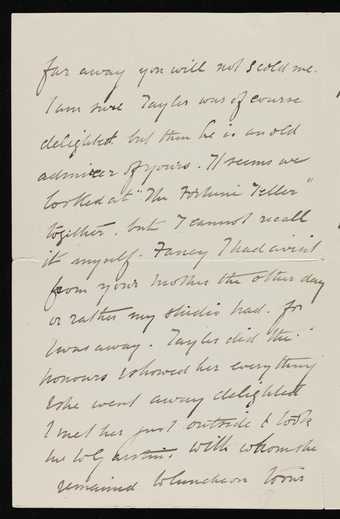 far away you will not scold me.
I am sure Tayler was of course
delighted but then he is an old
admirer of yours. It seems we
looked at "The Fortune Teller"
together. but I cannot recall
it myself. Fancy I had a visit
from your mother the other day
or rather my studio had. for
I was away. Tayler did the
honours & showed her everything
& she went away delighted
I met her just outside & took
her to Garstin's. with whom she
remained to luncheon